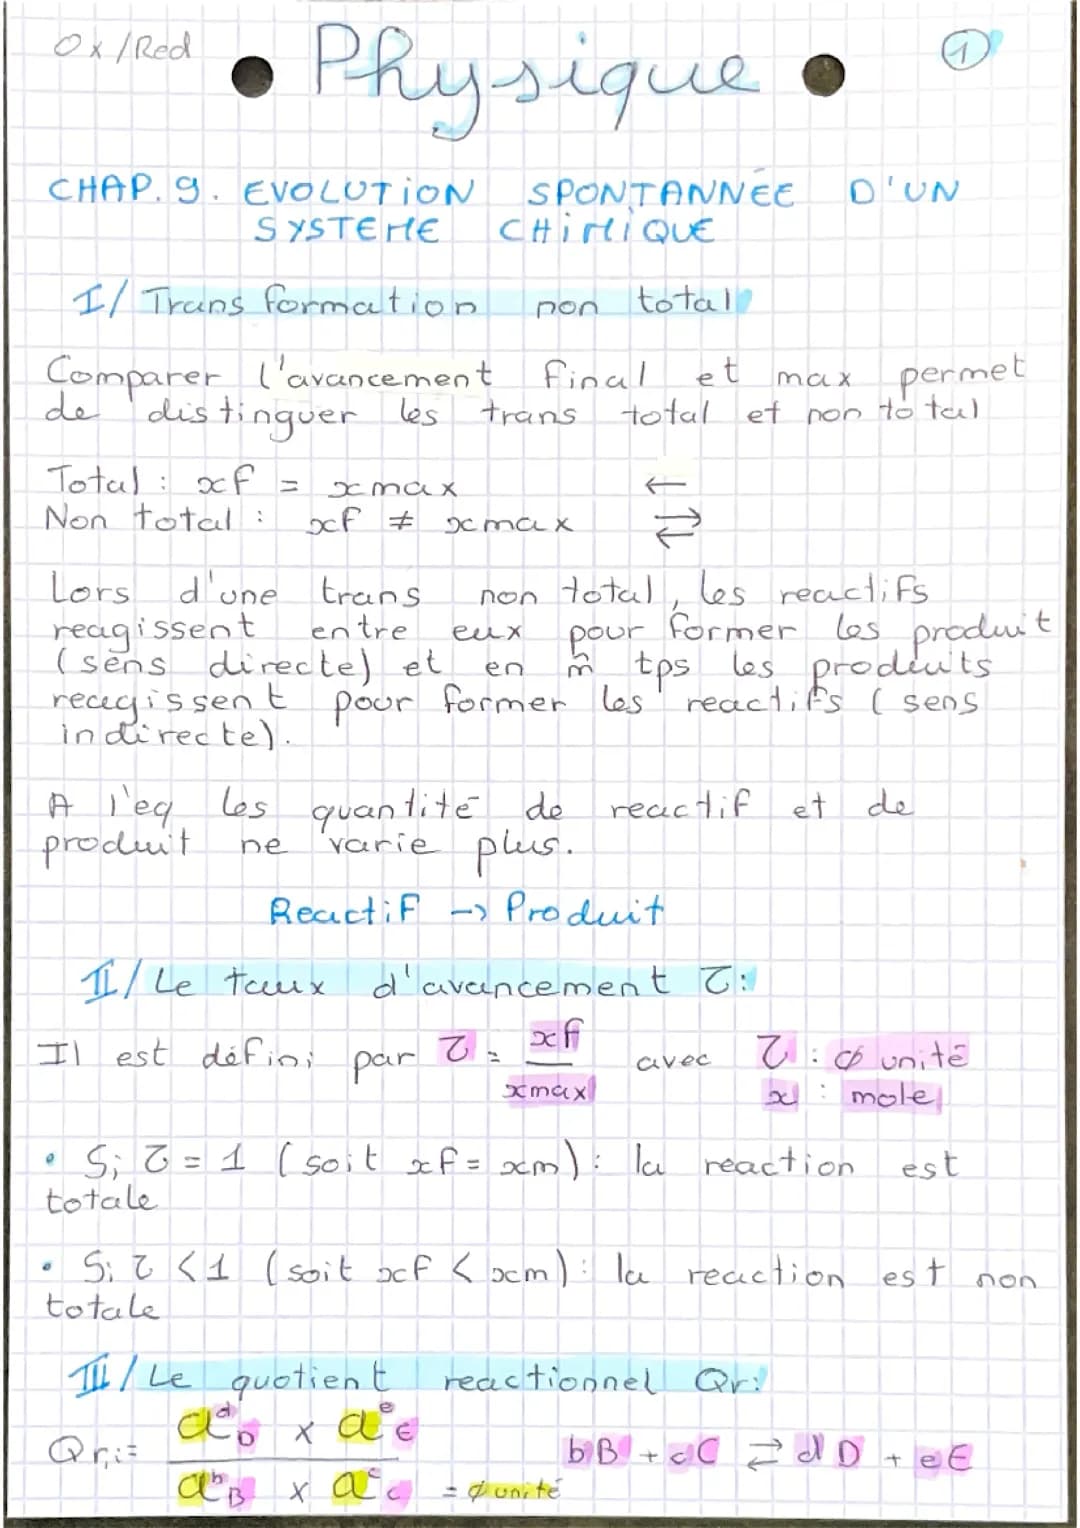 Ox/Red
Physique
1
CHAP.9. EVOLUTION SPONTANNÉE D'UN
SYSTEME CHIMIQUE
I/ Transformation non total
Comparer l'avancement final et max permet
de distinguer les trans total et non total
Total : xf = xmax ←
Non total : xf ≠ xmax ⇄
Lors d'une trans non total, les reactifs
reagissent entre eux pour former les produit
(sens directe) et en m̂ tps les produits
reagissent pour former les reactifs ( sens
indirecte).
A l'eq les quantité de reactif et de
produit ne varie plus.
Reactif → Produit
II/ Le taux d'avancement τ:
Il est défini par τ = xf / xmax avec τ : ∅ unité
x : mole
• Si τ = 1 (soit xf = xm) : la reaction est
totale
• Si τ < 1 (soit xf < xm) : la reaction est non
totale
III/ Le quotient reactionnel Qr:
Qr,i = a^d_D × a^e_E / a^b_B × a^c_C = ∅ unité
bB + cC ⇄ dD + eE